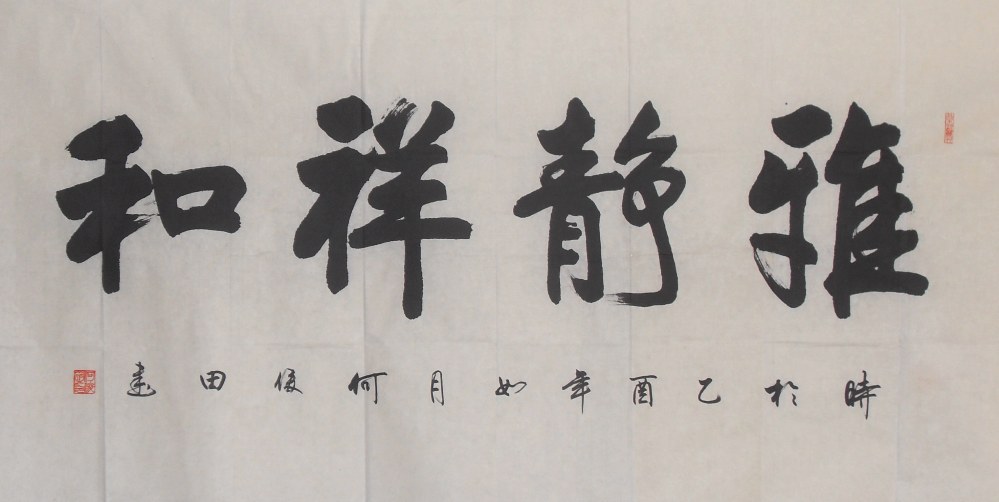 雅静祥和
時於乙酉年如月何俊田書